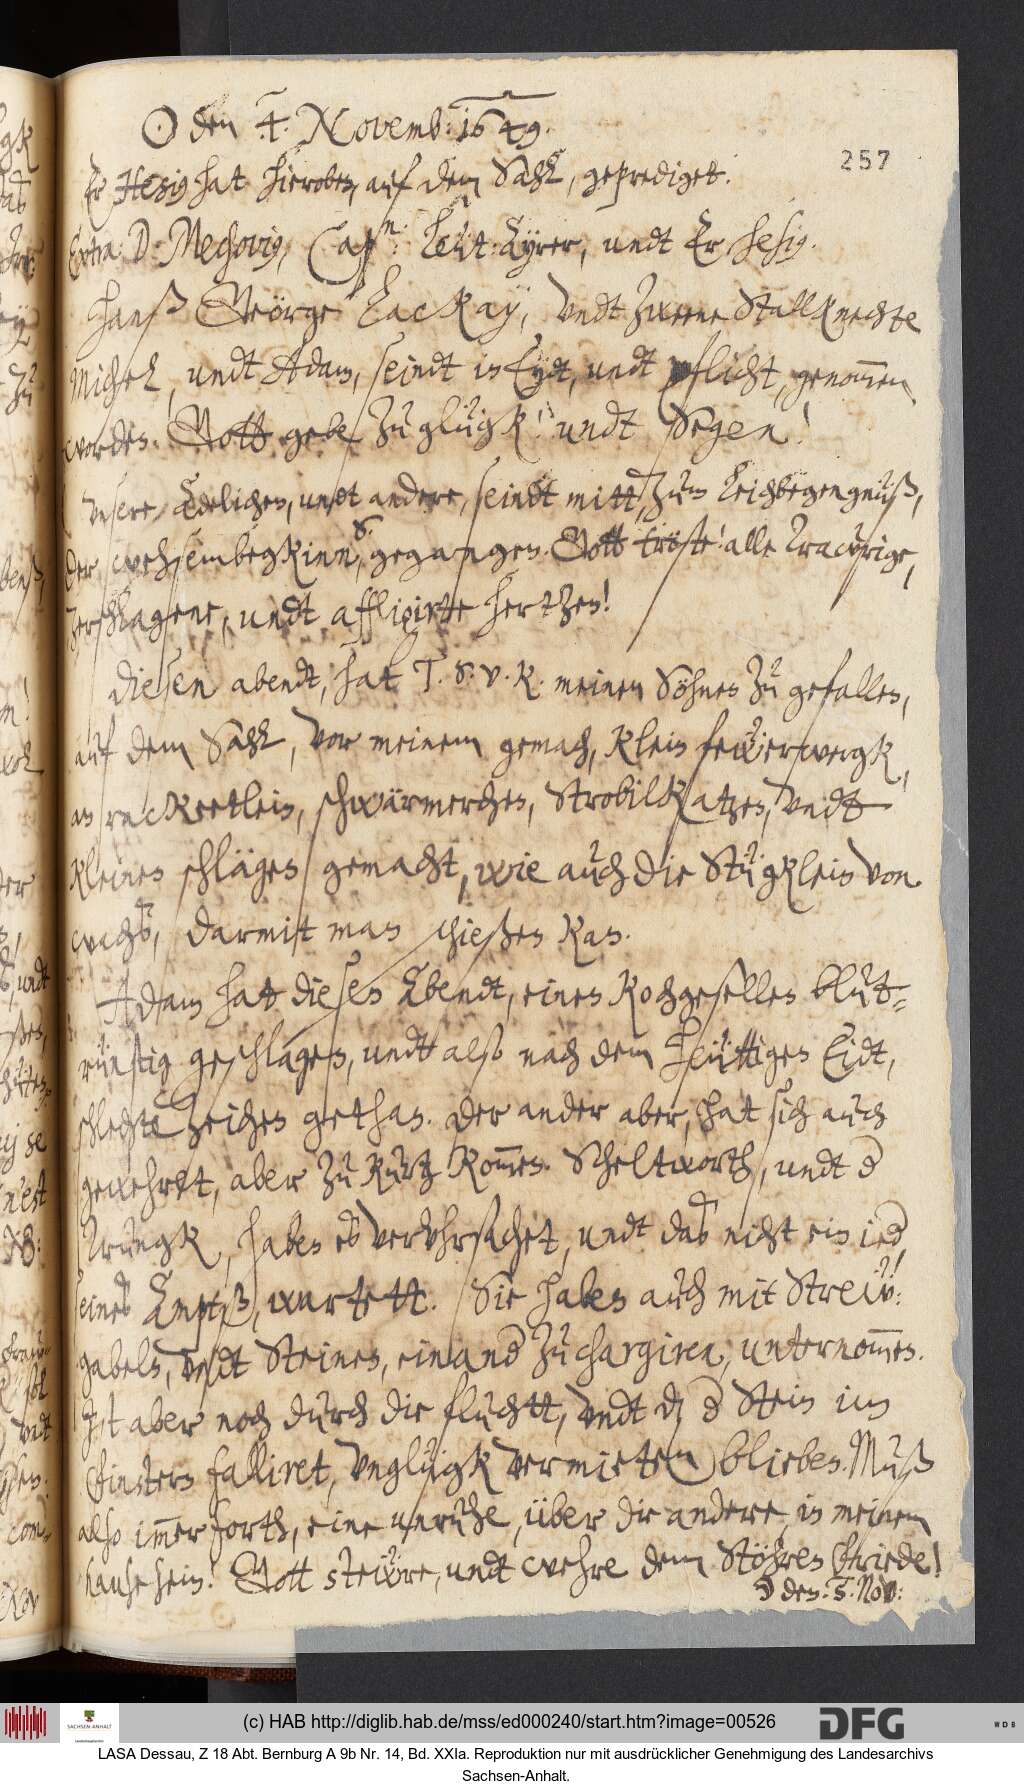 ☉ den 4. Novemb: 1649.
257
Er Hesig hat hieroben, auf dem Sahl, geprediget.
Extra: D. Mechovig, Cap.n Leut: Eyrer, undt Er Hesig.
Hanß Geörge Lackay, undt Zweene Stallknechte
Michel, undt Adam, seindt in Eydt, undt pflicht, genom̄en
worden. Gott gebe zu glügk! undt Segen!
Unsere Edelichen, undt andere, seindt mitt, zum Leichbegengnüß,
der gegangen. Gott tröste! alle Traurige,
Zerschlagene, undt affligirte Hertzen!
Diesen abendt, hat T. S. v. R. meinen Söhnen zu gefallen,
auf dem Sahl, vor meinem gemach, klein fewerwergk,
an rackeetlein, schwärmerchen, Strobilkatzen, undt
kleinen schlägen gemacht, wie auch die Stügklein von
wachß, darmit man schießen kan.
Adam hat diesen Abendt, einen Kochgesellen blut-
rünstig geschlagen, undt also nach dem heüttigen Eidt,
schlechte Zeichen gethan. Der ander aber, hat sich auch
gewehret, aber zu kurtz kom̄en. Scheltworth, undt d
Trungk, haben es veruhrsachet, undt das nicht ein ied
seines Ampts, wartett. Sie haben auch mit Strew:
gabeln, undt Steinen, einand zu chargiren, unternom̄en.
Ist aber noch durch die fluchtt, undt dz d Stein im
finstern falliret, unglügk vermieten blieben. Muß
also im̄er forth, eine unruhe, über die andere, in meinem
hause sein! Gott stewre, undt wehre dem Stöhren friede!
☽ den: 5. Nov:
(c) HAB http://diglib.hab.de/mss/ed000240/start.htm?image=00526
SACHSEN-ANHALT
DFG
WDB
LASA Dessau, Z 18 Abt. Bernburg A 9b Nr. 14, Bd. XXIa. Reproduktion nur mit ausdrücklicher Genehmigung des Landesarchivs
Sachsen-Anhalt.